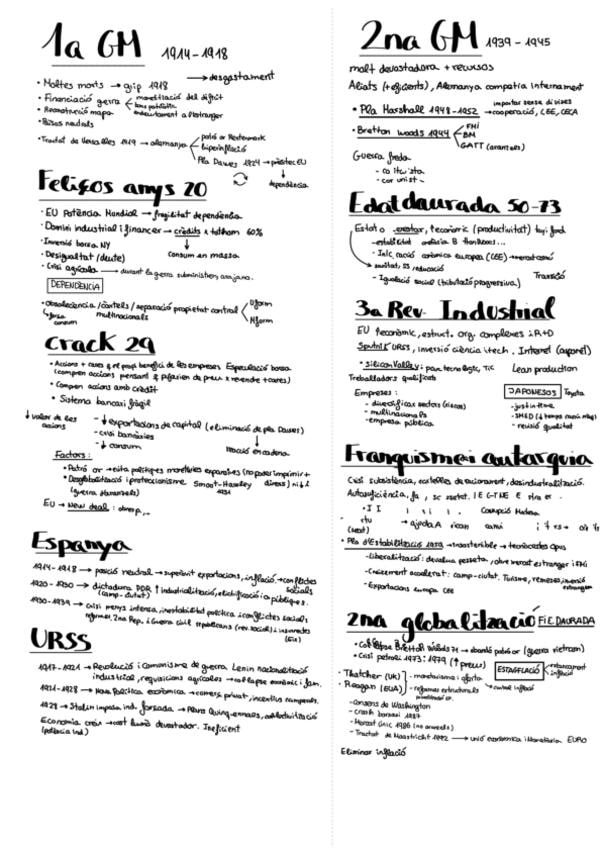 1a GM 1914-1918
• Moltes morts → grip 1918 → desgastament
• Financiació guerra monetització del dèficit
bons patriòtics
endeutament a l'estranger
• Reconstrucció mapa
• Països neutrals
• Tractat de Versalles 1919 → alemanya patró or Rentenmark
hiperinflació
Pla Dawes 1924 → préstec EU
dependència
Feliços anys 20
• EU Potència Mundial → fragilitat dependència
• Domini industrial i financer → crèdits x tothom 60%
Consum en massa
• Inversió borsa NY
• Desigualtat / deute)
• Crisi agrícola → durant la gerra
DEPENDÈNCIA
• Obsolescència / càrtels / separació propietat control Uform
Mform
↳ força consum multinacionals
Crack 29
• Accions + cares q el propi benefici de les empreses Especulació borsa
(compren accions pensant q pujarien de preu x revendre + cares)
• Compren accions amb crèdit
• Sistema bancari fràgil
↓ valor de les accions
- ↓ exportacions de capital (eliminació de pla Dawes)
- crisi bancàries
- ↓ consum
reacció en cadena
Factors:
• Patró or → evita polítiques monetàries expansives (no poder imprimir +
• Desglobalització i proteccionisme Smoot-Hawley diners)
(guerra aranzels) 1931
EU → New deal :
Espanya
1914-1918 → posició neutral → superàvit exportacions, inflació → conflictes socials
1920-1930 → dictadura PDR ↑ industrialització, electrificació i o públiques.
(camp-ciutat)
1930-1939 → crisi menys intensa, inestabilitat política i conflictes socials
reformes, 2na Rep. i Guerra civil republicans (rev. social) i insurrectes
URSS
1917-1921 → Revolució i comunisme de guerra. Lenin nacionalització
industrial, requisicions agrícoles → collapse econòmic i fam.
1921-1928 → Nova Política econòmica → comerç privat, incentius
1928 → Stalin imposa ind. forçada → Plans Quinquennals, col·lectivització
Economia creix → cost humà devastador. Ineficient
(potència ind)
2na GM 1939 - 1945
molt devastadora + recursos
Aliats (+ eficients), Alemanya competia internament
• Pla Marshall 1948-1952 → cooperació, CEE, CECA
importar sense divises
• Bretton Woods 1944 FMI
BM
GATT (aranzels)
Guerra freda
Edat daurada 50-73
Estat o tecnòmic (productivitat)
- estabilitat
europea (CEE) →
↳ sanitat, SS educació
- Igualació social (tributació progressiva)
Transició
3a Rev. Industrial
EU tecnòmic, estruct. org. complexes i R+D
Sputnik URSS, inversió ciència i tech. Internet
• Silicon Valley: parc tecnològic, TIC
Lean production
Treballadors qualificats
Empreses:
- diversificar sectors (riscos)
- multinacionals
- empresa pública
JAPONESOS Toyota
- just in time
- SMED
- revisió qualitat
Franquisme i autarquia
Crisi subsistència, cartelles de racionament, desindustrialització.
Autosuficiència,
Corrupció
→ ajuda A
• Pla d'Estabilització 1959 → insostenible → tecnòcrates opus
- Liberalització: devalua pesseta, obre mercat estranger i FMI
- Creixement accelerat: camp-ciutat. Turisme, remeses, inversió estranger
- Exportacions europa CEE
2na globalització FI E. DAURADA
• Col·lapse Bretton Woods 71 → abandó patró or (guerra vietnam)
• Crisi petroli 1973; 1979 (↑ preus)
ESTAGFLACIÓ estancament
inflació
- Thatcher (UK) - monetarisme i oferta → control inflació
- Reagan (EUA) - reformes estructurals
- Consens de Washington
- crash borsari 1987
- Mercat únic 1986 (no aranzels)
- Tractat de Maastricht 1992 → unió econòmica i Monetària EURO
Eliminar inflació